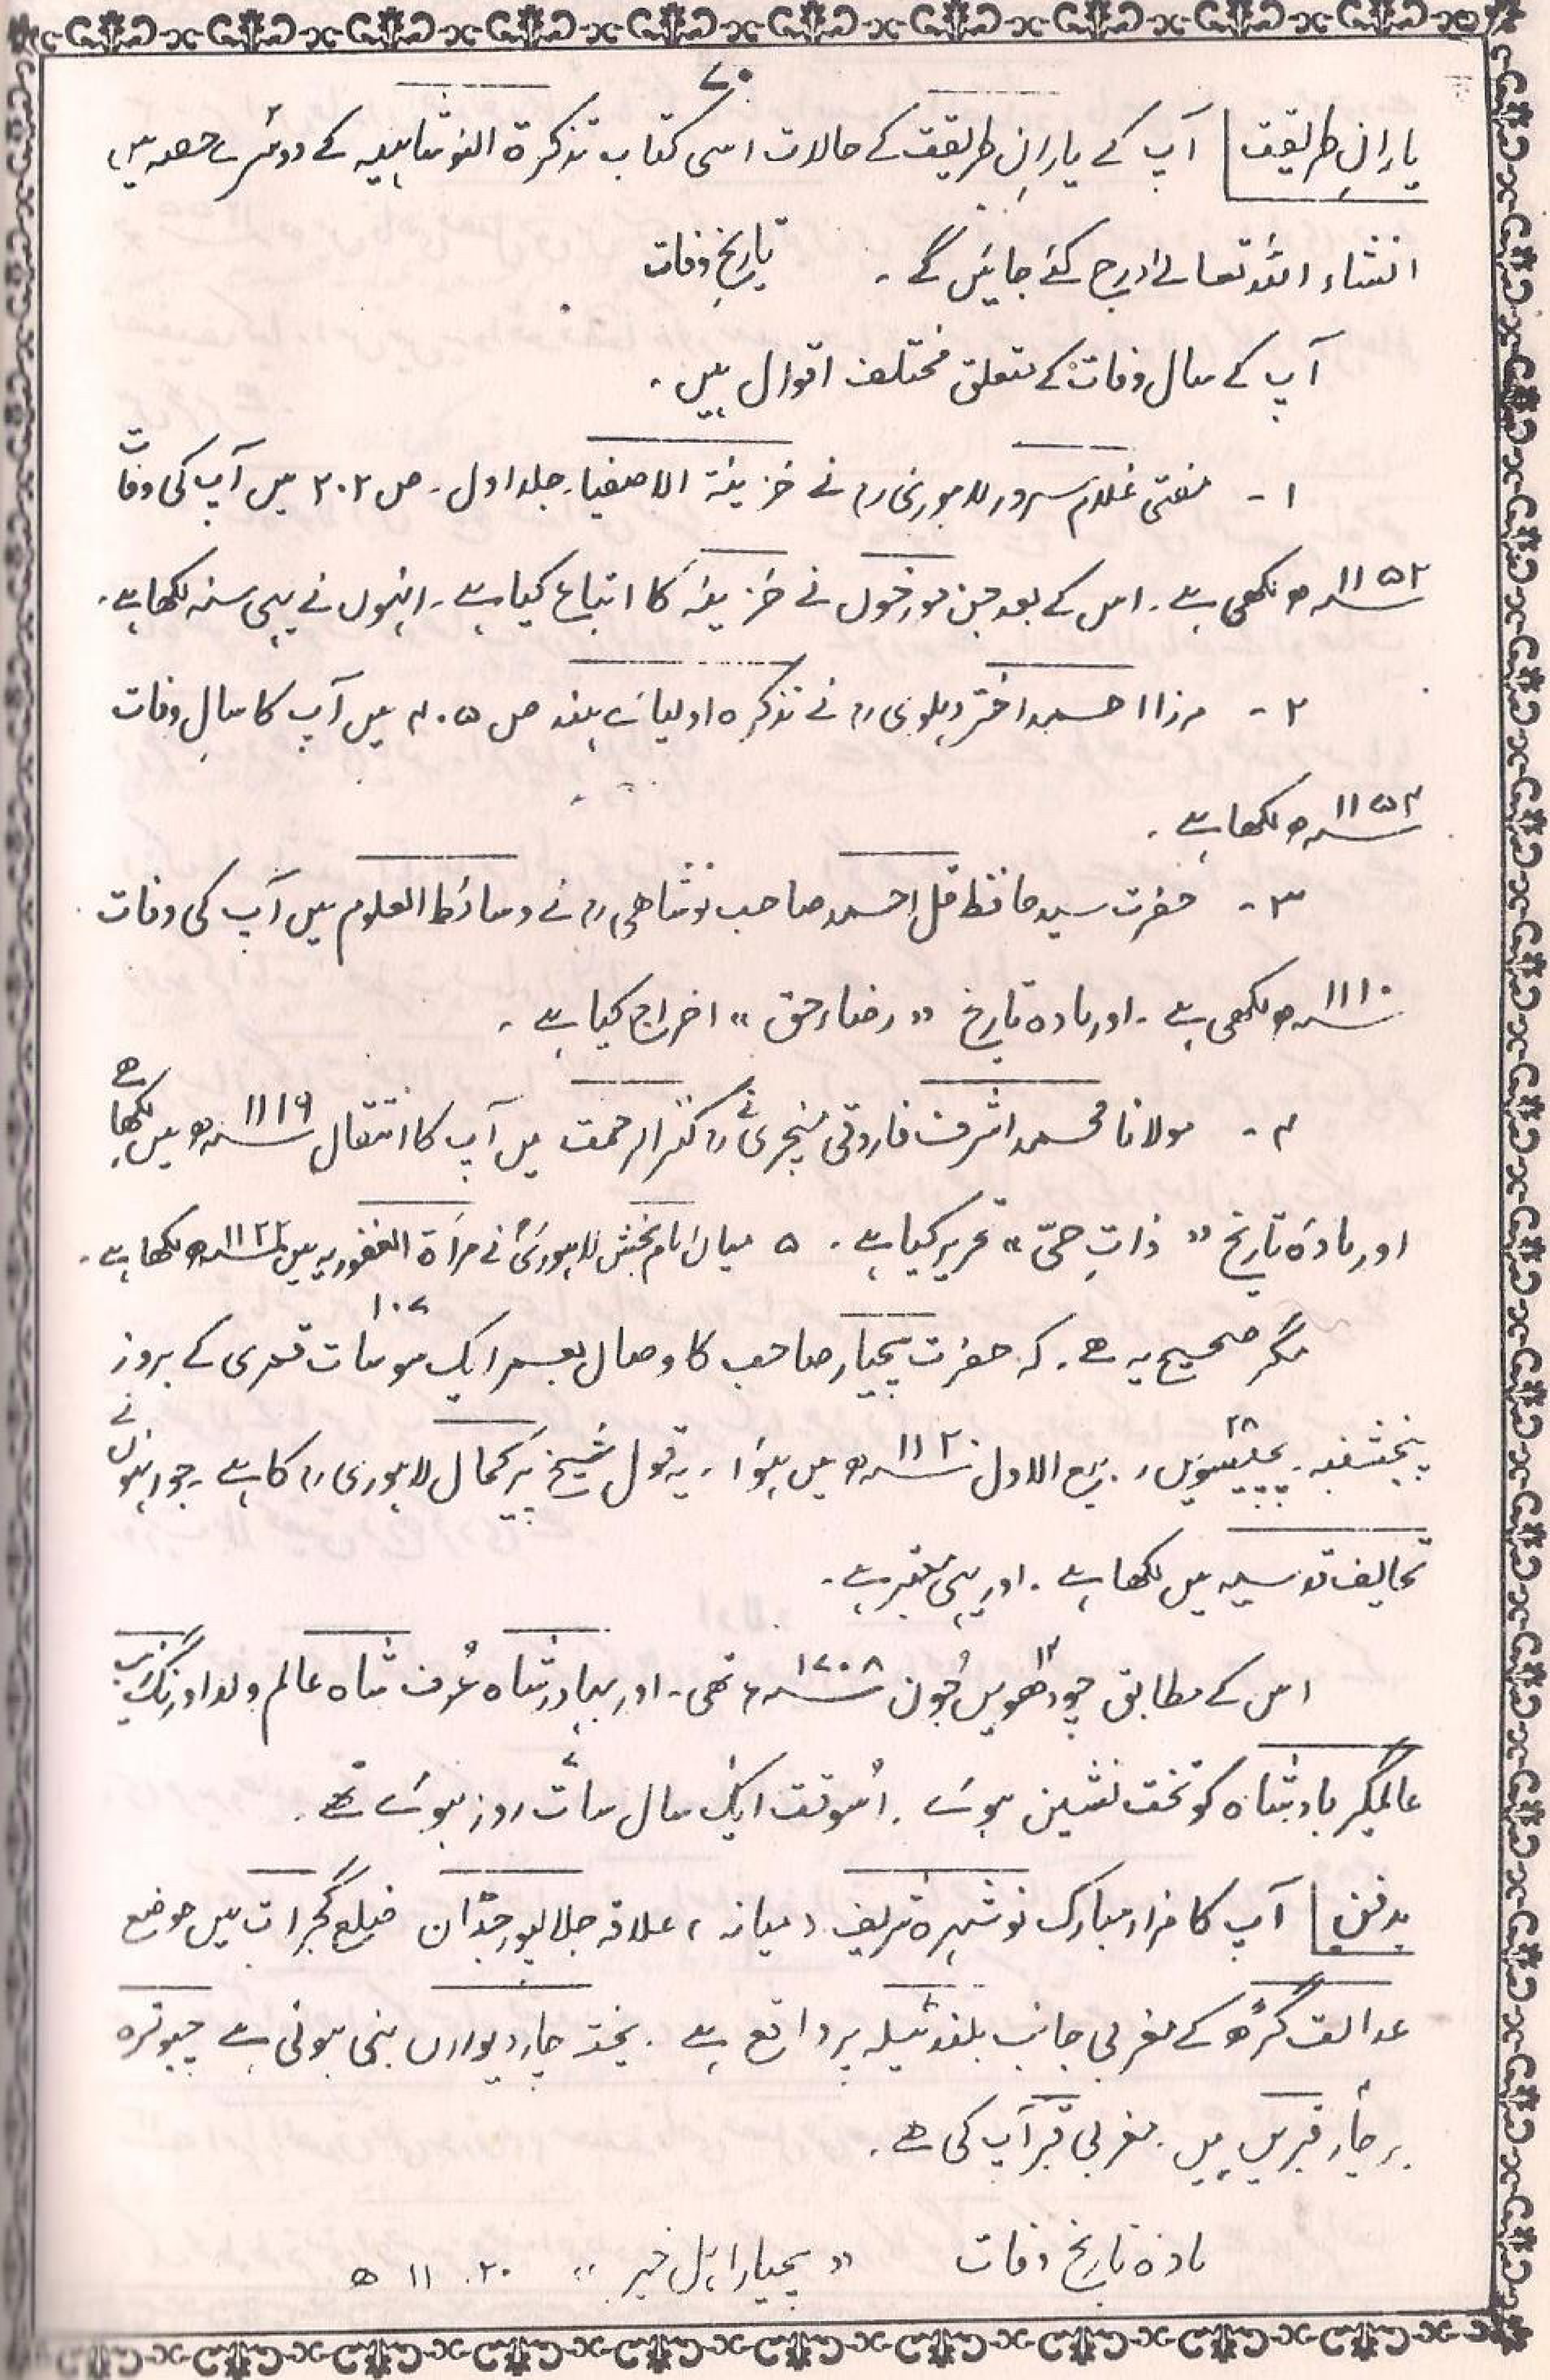 ۷۰
یارانِ طریقت آپ کے یارانِ طریقت کے حالات اسی کتاب تذکرۃ النوشاہیہ کے دوسرے حصہ میں
انشاء اللہ تعالےٰ درج کئے جائیں گے ۔ تاریخِ وفات
آپ کے سال وفات کے متعلق مختلف اقوال ہیں ۔
۱ - مفتی غلام سرور لاہوری رح نے خزینۃ الاصفیا۔ جلد اول ۔ ص ۲۰۲ میں آپ کی وفات
۱۱۵۲ھ لکھی ہے ۔ اس کے بعد جن مورخوں نے خزینہ کا اتباع کیا ہے ۔ انہوں نے یہی سنہ لکھا ہے ۔
۲ - مرزا احمد اختر دہلوی رح نے تذکرہ اولیائے ہند ص ۴۰۵ میں آپ کا سالِ وفات
۱۱۵۴ھ لکھا ہے ۔
۳ - حضرت سید حافظ قل احمد صاحب نوشاہی رح نے وسائط العلوم میں آپ کی وفات
۱۱۱۰ھ لکھی ہے ۔ اور مادہ تاریخ " رضاء حق " اخراج کیا ہے ۔
۴ - مولانا محمد اشرف فاروقی منچری رح نے کنز الرحمت میں آپ کا انتقال ۱۱۱۹ھ میں لکھا ہے
اور مادۂ تاریخ " ذاتِ حیّ " تحریر کیا ہے ۔ ۵ میاں امام بخش لاہوری نے مراۃ الغفوریہ میں ۱۱۲۲ھ لکھا ہے ۔
مگر صحیح یہ ہے ۔ کہ حضرت پچیار صاحب کا وصال بعمر ایک سو سات ۱۰۷ قمری کے بروز
پنجشنبہ ۔ ۲۸ ربیع الاول ۱۱۲۰ھ میں ہوا ۔ یہ قول شیخ پیر کمال لاہوری رح کا ہے ۔ جو انہوں نے
تحایف قدسیہ میں لکھا ہے ۔ اور یہی معتبر ہے ۔
اس کے مطابق چودھویں ۱۴ جُون ۱۷۰۸ء تھی ۔ اور بہادر شاہ عُرف شاہ عالم ولد اورنگ زیب
عالمگیر بادشاہ کو تخت نشین ہوئے ۔ اُسوقت ایک ۱ سال سات ۷ روز ہوئے تھے ۔
مدفن آپ کا مزار مبارک نوشہرہ شریف ( میانہ ) علاقہ جلالپور جٹاں ضلع گجرات میں موضع
عدالت گڑھ کے مغربی جانب بلند ٹیلہ پر واقع ہے ۔ پختہ چاردیواری بنی ہوئی ہے چبوترہ
پر چار ۴ قبریں ہیں ۔ مغربی قبر آپ کی ہے ۔
مادہ تاریخ وفات " پچیار اہل خیر " ۱۱۲۰ ھ